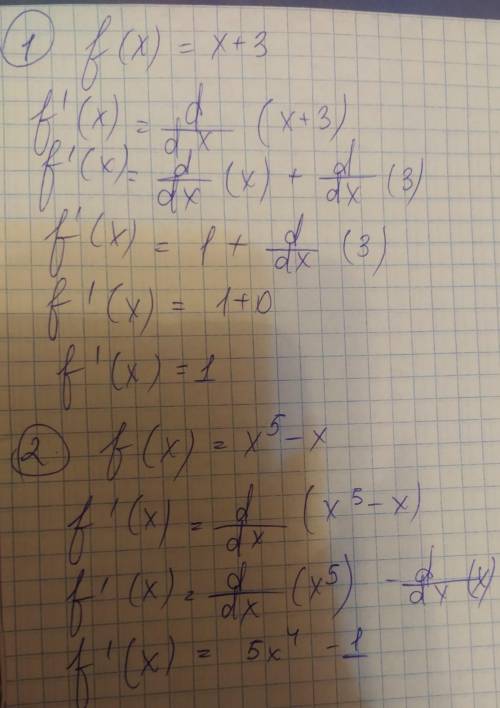 1 f(x) = x+3
f'(x) = d/dx (x+3)
f'(x) = d/dx (x) + d/dx (3)
f'(x) = 1 + d/dx (3)
f'(x) = 1+0
f'(x) = 1
2 f(x) = x⁵-x
f'(x) = d/dx (x⁵-x)
f'(x) = d/dx (x⁵) - d/dx (x)
f'(x) = 5x⁴ - 1